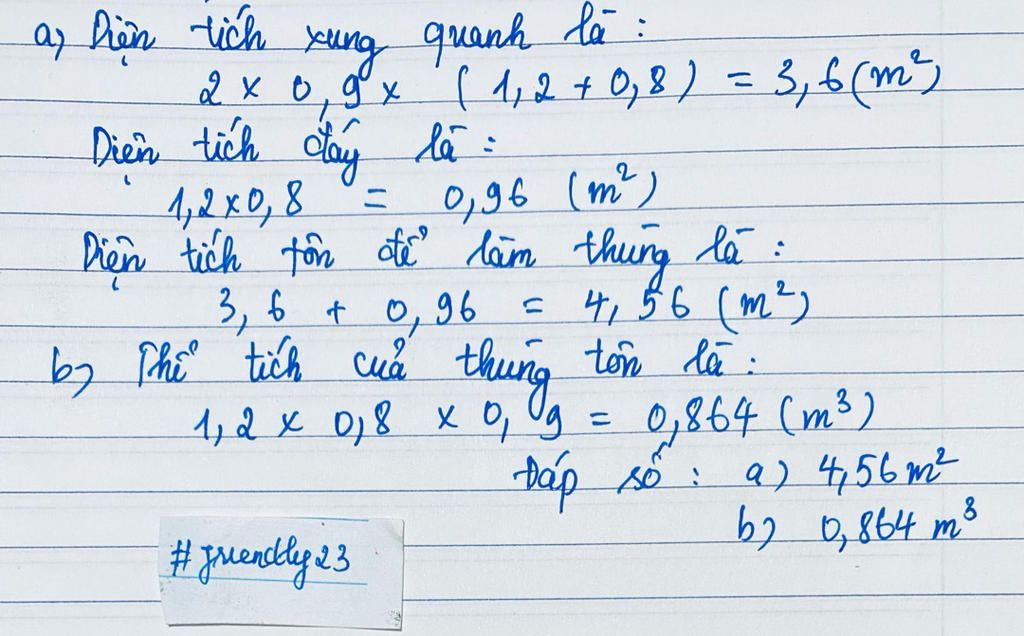 a) Diện tích xung quanh là :
2 x 0,9 x ( 1,2 + 0,8 ) = 3,6 (m²)
Diện tích đáy là :
1,2 x 0,8 = 0,96 (m²)
Diện tích tôn để làm thùng là :
3,6 + 0,96 = 4,56 (m²)
b) Thể tích của thùng tôn là :
1,2 x 0,8 x 0,9 = 0,864 (m³)
Đáp số : a) 4,56 m²
b) 0,864 m³
#friendly23